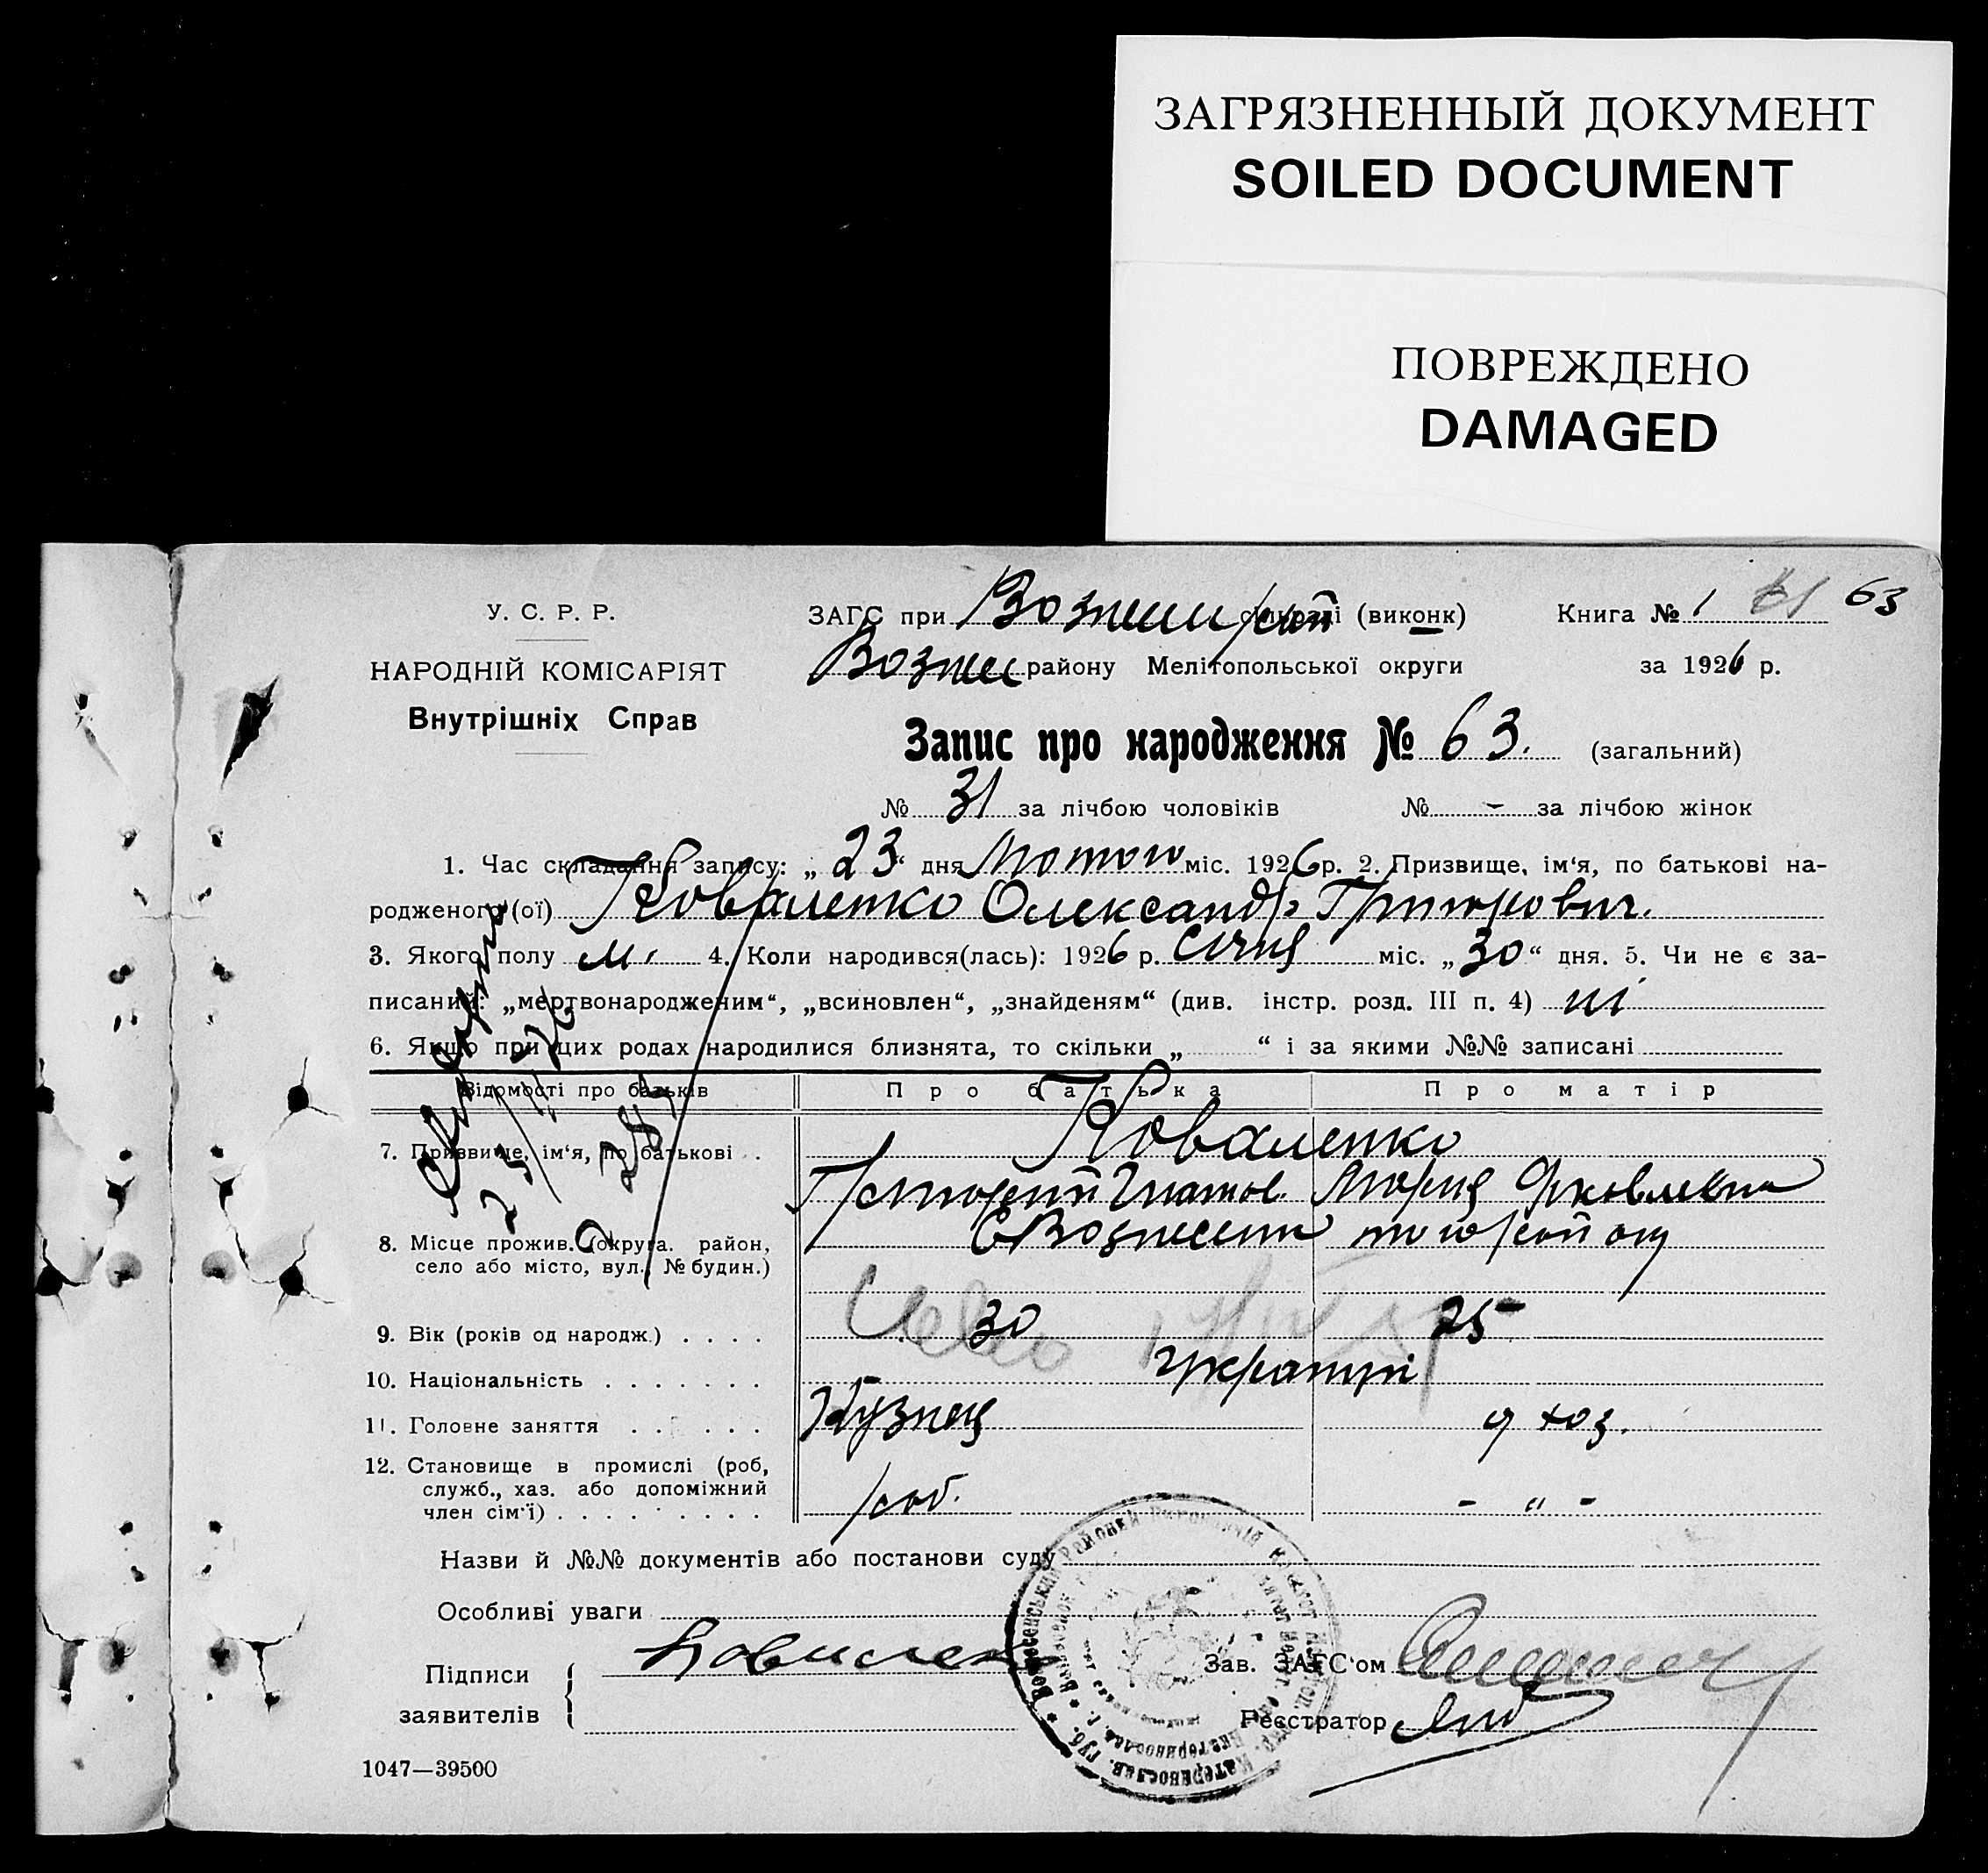 ЗАГРЯЗНЕННЫЙ ДОКУМЕНТ
SOILED DOCUMENT
ПОВРЕЖДЕНО
DAMAGED
У. С. Р. Р.
НАРОДНІЙ КОМІСАРІЯТ
Внутрішніх Справ
ЗАГС при (виконк)
району Мелітопольської округи
Книга № 1 63
за 1926 р.
Запис про народження № 63. (загальний)
№ 31 за лічбою чоловіків № - за лічбою жінок
1. Час складання запису: „ 23 “ дня Лютого міс. 1926 р. 2. Призвище, ім‘я, по батькові на-
родженого (ої) Коваленко Олександр Григорович.
3. Якого полу м. 4. Коли народився(лась): 1926 р. Січня міс. „ 30 “ дня. 5. Чи не є за-
писаний: „мертвонародженим“, „всиновлен“, „знайденям“ (див. інстр. розд. III п. 4) ні
6. Якщо при цих родах народилися близнята, то скільки „ “ і за якими №№ записані
Відомості про батьків Про батька Про матір
7. Призвище, ім‘я, по батькові . Коваленко
Григорій Игнатов. Мария Яковлевна
8. Місце прожив. (округа. район,
село або місто, вул., № будин.)
9. Вік (років од народж.) . . . . 30 25
10. Національність . . . . . . . українці
11. Головне заняття . . . . . . Кузнец д хоз.
12. Становище в промислі (роб,
служб., хаз. або допоміжний
член сім‘ї) . . . . . . . . . роб. - " -
Назви й №№ документів або постанови суду
Особливі уваги
Підписи
заявителів
Коваленко
Зав. ЗАГС‘ом
Реєстратор
1047—39500